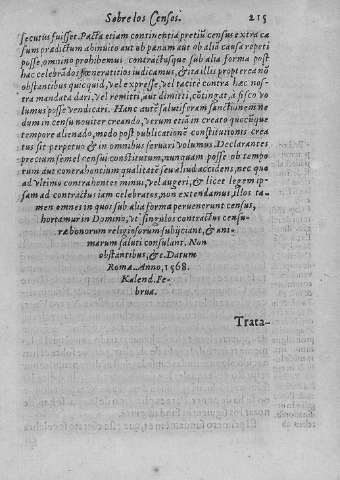 Sobre los Censos. 215
secutus fuisset. Pacta etiam continentia pretiũ census extra ca
sum prædictum ab inuito aut ob pœnam aut ob aliã causa repeti
posse, omnino prohibemus contractusque sub alia forma post
hac celebrãdos fœneratitios iudicamus, & ita illis propterea nõ
obstantibus quicquid, vel expresse, vel tacite contra hæc nos-
tra mandata dari, vel remitti, aut dimitti, cõtingat, a fisco vo
lumus posse vendicari. Hanc autẽ salutiferam sanctionem ne
dum in censu nouiter creando, verum etiã in creato quocũque
tempore alienado, modo post publicationẽ constitutionis crea
tus sit perpetuo & in omnibus seruari volumus. Declarantes
precium semel censui constitutum, nunquam posse ob tempo
rum aut contrahentium qualitatẽ seu aliud accidens, nec quo
ad vltimo contrahentes minui, vel augeri, & licet legem ip-
sam ad contractus iam celebratos, non extendamus, illos ta-
men omnes in quos sub alia forma peruenerunt census,
hortamur in Domino, vt singulos contractus censu-
ra bonorum religiosorum subijciant, & ani-
marum saluti consulant. Non
obstantibus, & c. Datum
Romæ. Anno, 1568.
Kalend. Fe-
brua.
Trata-